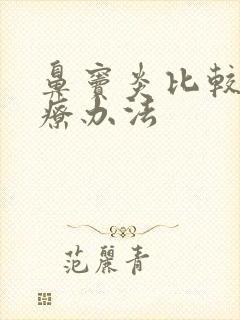 鼻窦炎比较
疗办法
范丽青